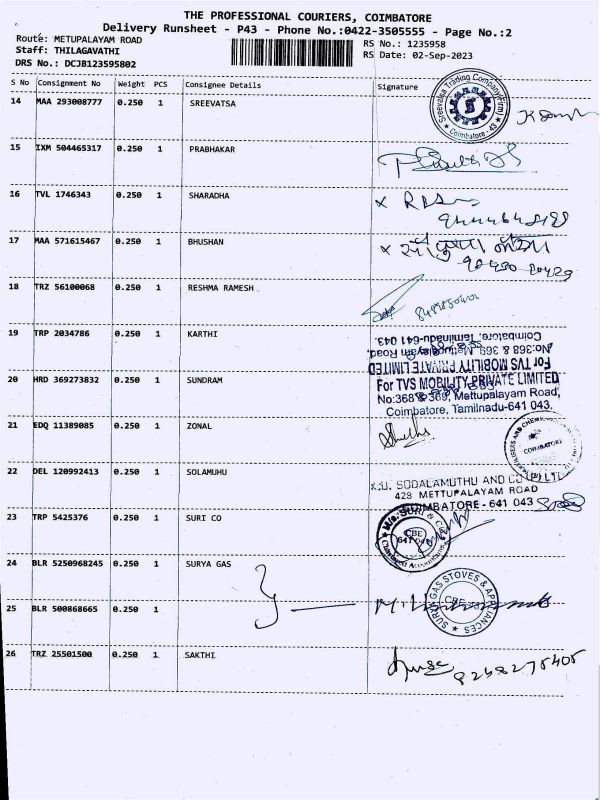 THE PROFESSIONAL COURIERS, COIMBATORE
Delivery Runsheet - P43 - Phone No.:0422-3505555 - Page No.:2
Route: METUPALAYAM ROAD
RS No.: 1235958
Staff: THILAGAVATHI
RS Date: 02-Sep-2023
DRS No.: DCJB123595802
S No Consignment No Weight PCS Consignee Details Signature
14 MAA 293008777 0.250 1 SREEVATSA
Sreevatsa Trading Company(Firm) Coimbatore - 43
15 IXM 504465317 0.250 1 PRABHAKAR
16 TVL 1746343 0.250 1 SHARADHA
17 MAA 571615467 0.250 1 BHUSHAN
18 TRZ 56100068 0.250 1 RESHMA RAMESH
19 TRP 2034786 0.250 1 KARTHI
For TVS MOBILITY PRIVATE LIMITED
No:368 & 369, Mettupalayam Road,
Coimbatore, Tamilnadu-641 043.
20 HRD 369273832 0.250 1 SUNDRAM
For TVS MOBILITY PRIVATE LIMITED
No:368 & 369, Mettupalayam Road,
Coimbatore, Tamilnadu-641 043.
21 EDQ 11389085 0.250 1 ZONAL
COIMBATORE
22 DEL 120992413 0.250 1 SOLAMUHU
SODALAMUTHU AND CO
428 METTUPALAYAM ROAD
COIMBATORE - 641 043
23 TRP 5425376 0.250 1 SURI CO
M/s. SURI & CO Chartered Accountants
CBE
641 043
24 BLR 5250968245 0.250 1 SURYA GAS
25 BLR 500868665 0.250 1
SURYA GAS STOVES & APPLIANCES
CBE
26 TRZ 25501500 0.250 1 SAKTHI
8248275405